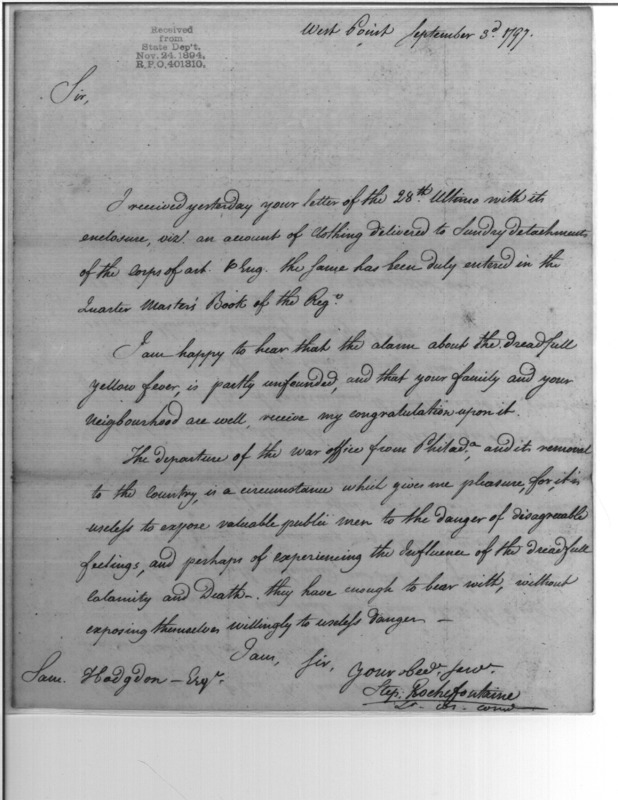 Received
from
State Dep't.
Nov. 24. 1894,
R.P.O. 401310.
West Point September 3d. 1797.
Sir,
I received yesterday your letter of the 28th. Ultimo with its
enclosure, viz. an account of Clothing delivered to Sundry detachments
of the Corps of art. & Eng. the same has been duly entered in the
Quarter Master's Book of the Regt.
I am happy to hear that the alarm about the dreadfull
yellow fever, is partly unfounded, and that your family and your
Neigbourhood are well, receive my congratulation upon it.
The departure of the war office from Philada. and its removal
to the Country, is a circumstance which gives me pleasure, for, it is
useless to expose valuable public men to the danger of disagreeable
feelings, and perhaps of experiencing the Influence of the dreadfull
Calamity and Death – they have enough to bear with, without
exposing themselves willingly to useless danger –
I am, Sir, your obedt. servt.
Sam. Hodgdon – Esqr.
Step. Rochefontaine
Lt. Col. Comdt